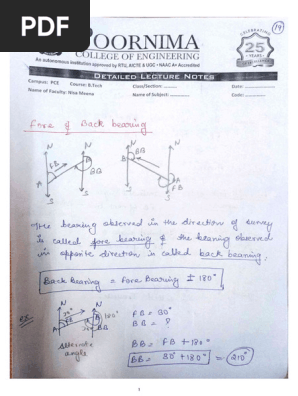 PDF
POORNIMA
COLLEGE OF ENGINEERING
An autonomous institution approved by RTU, AICTE & UGC • NAAC A+ Accredited
CELEBRATING
25
YEARS
19
DETAILED LECTURE NOTES
Campus: PCE Course: B.Tech Class/Section: Date:
Name of Faculty: Nisa Meena Name of Subject: Code:
Fore & Back bearing
N N N N
FB BB B BB
A B A FB
S S S S
The bearing observed in the direction of survey
is called fore bearing & the bearing observed
in opposite direction is called back bearing.
Back Bearing = Fore Bearing ± 180°
ex. N N FB = 30°
A FB B 180° BB = ?
Alternate
angle
BB = FB + 180°
BB = 30° + 180° = 210°
1